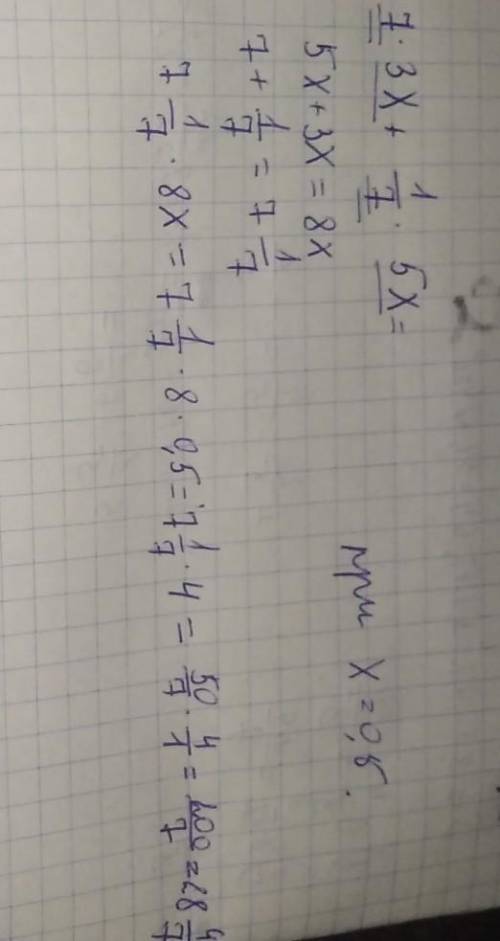 7 · 3x + 1/7 · 5x =
5x + 3x = 8x
при x = 0,5.
7 + 1/7 = 7 1/7
7 1/7 · 8x = 7 1/7 · 8 · 0,5 = 7 1/7 · 4 = 50/7 · 4/1 = 200/7 = 28 4/7